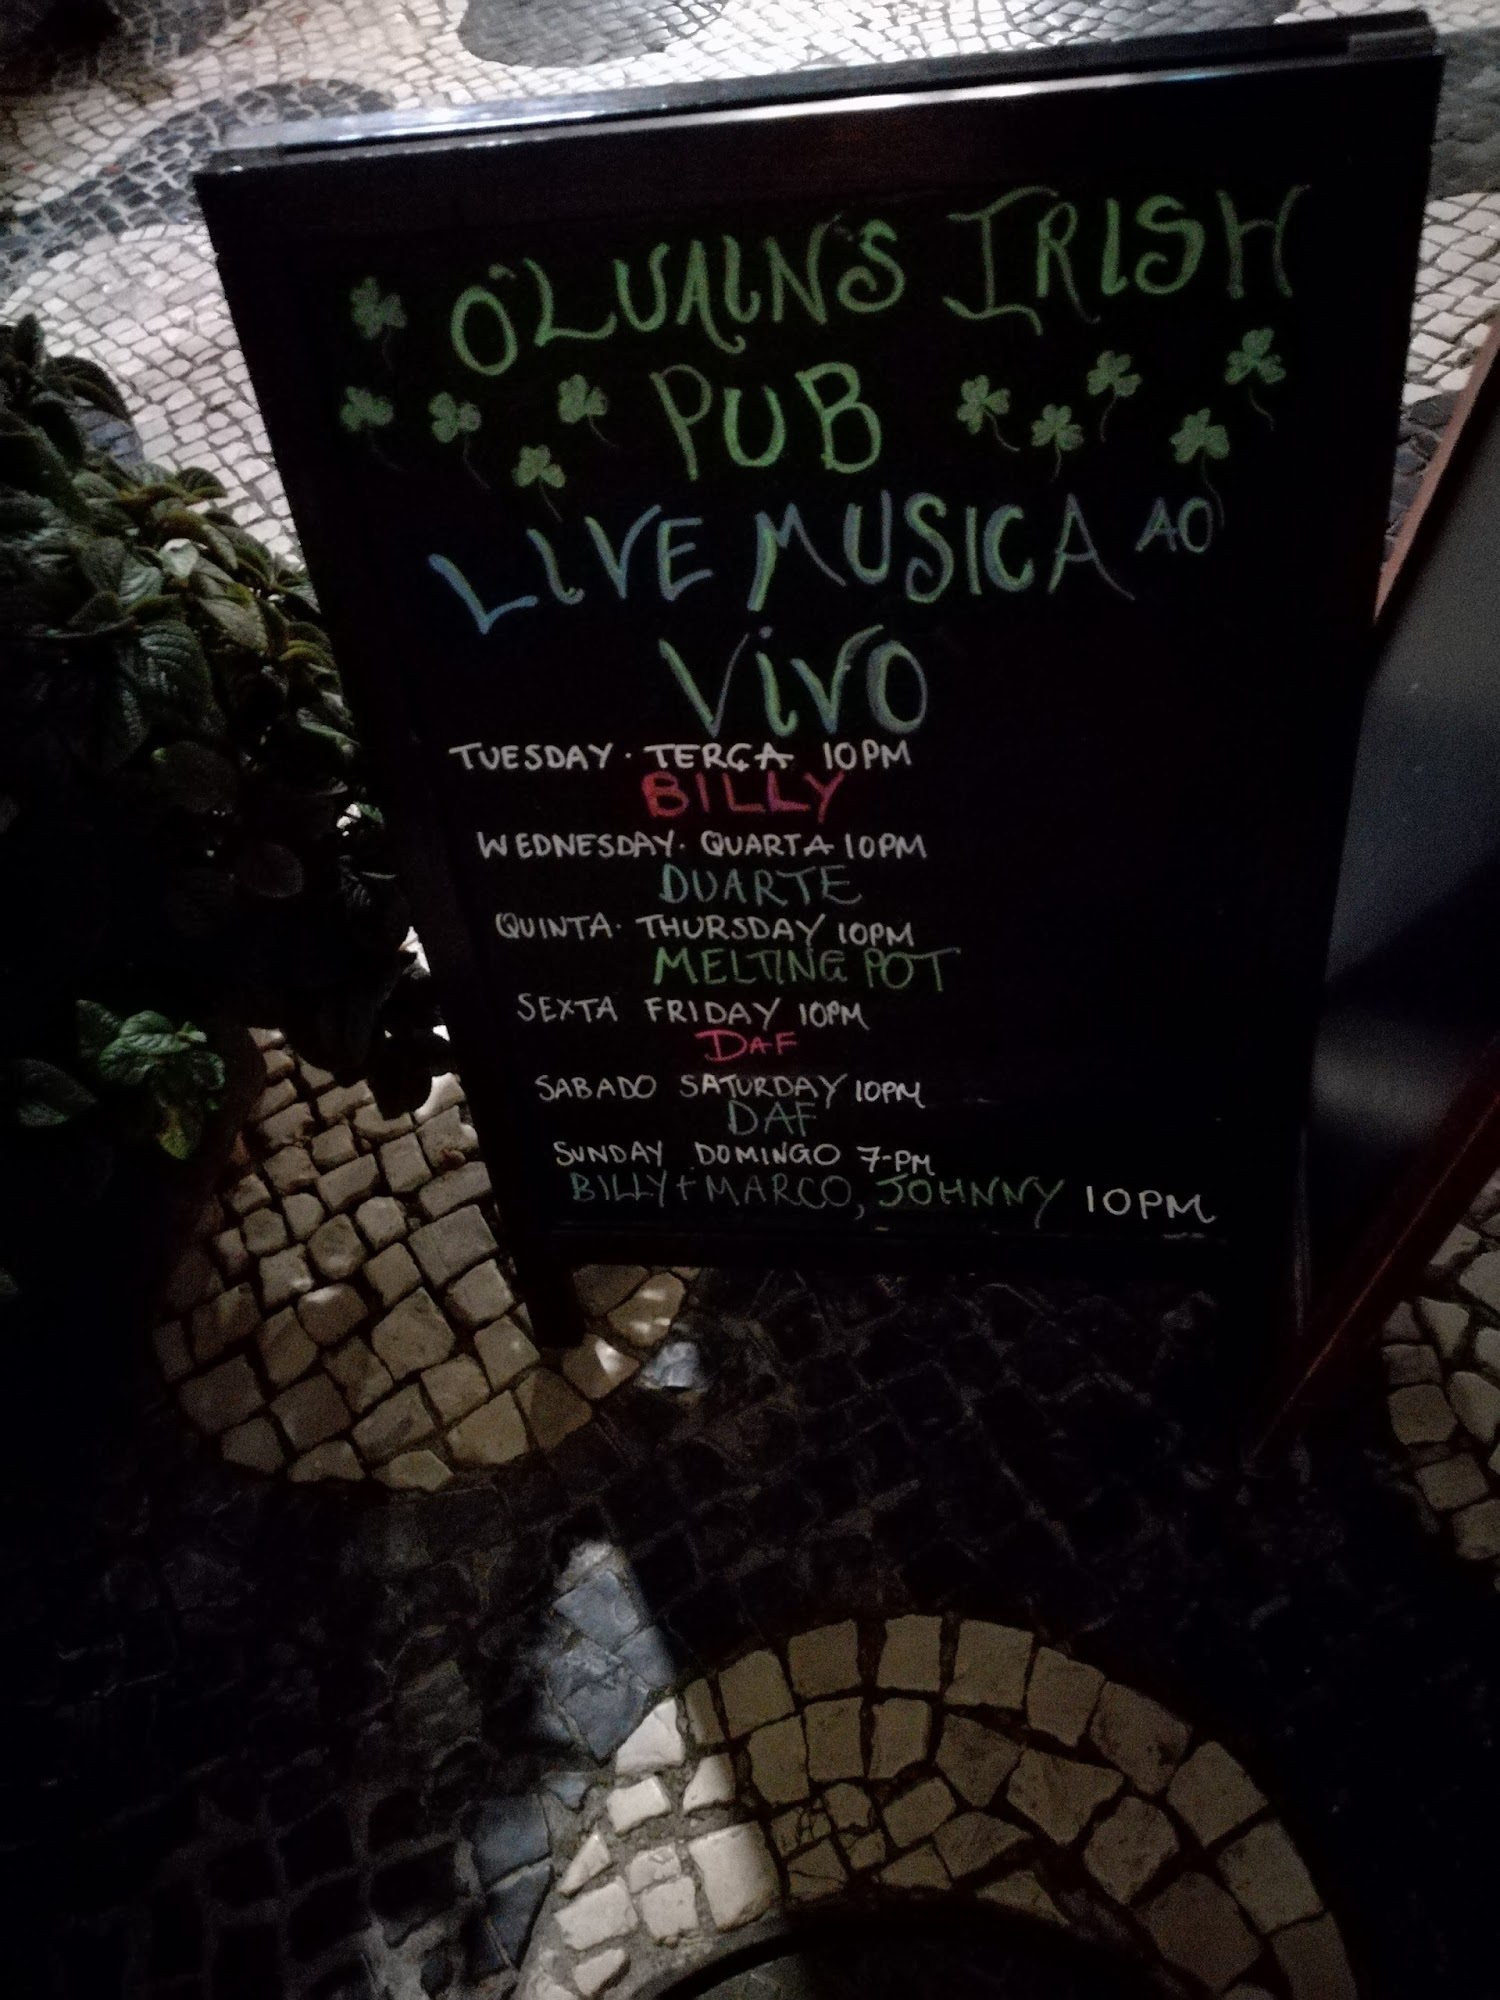 O'LUAIN'S IRISH
PUB
LIVE MUSICA AO
VIVO
TUESDAY · TERÇA 10PM
BILLY
WEDNESDAY · QUARTA 10PM
DUARTE
QUINTA · THURSDAY 10PM
MELTING POT
SEXTA FRIDAY 10PM
DAF
SABADO SATURDAY 10PM
DAF
SUNDAY DOMINGO 7-PM
BILLY + MARCO, JOHNNY 10PM